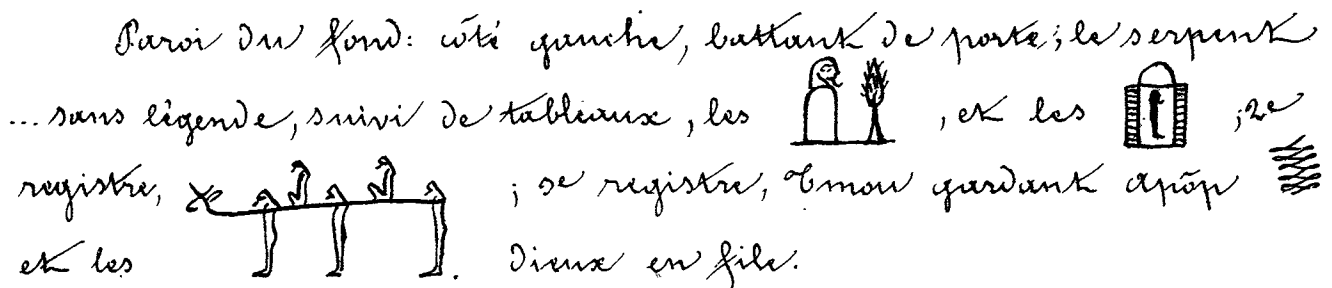 Paroi du fond: côté gauche, battant de porte; le serpent
... sans légende, suivi de tableaux, les , et les ; 2e
registre, ; 3e registre, Tmou gardant Apôp
et les . Dieux en file.